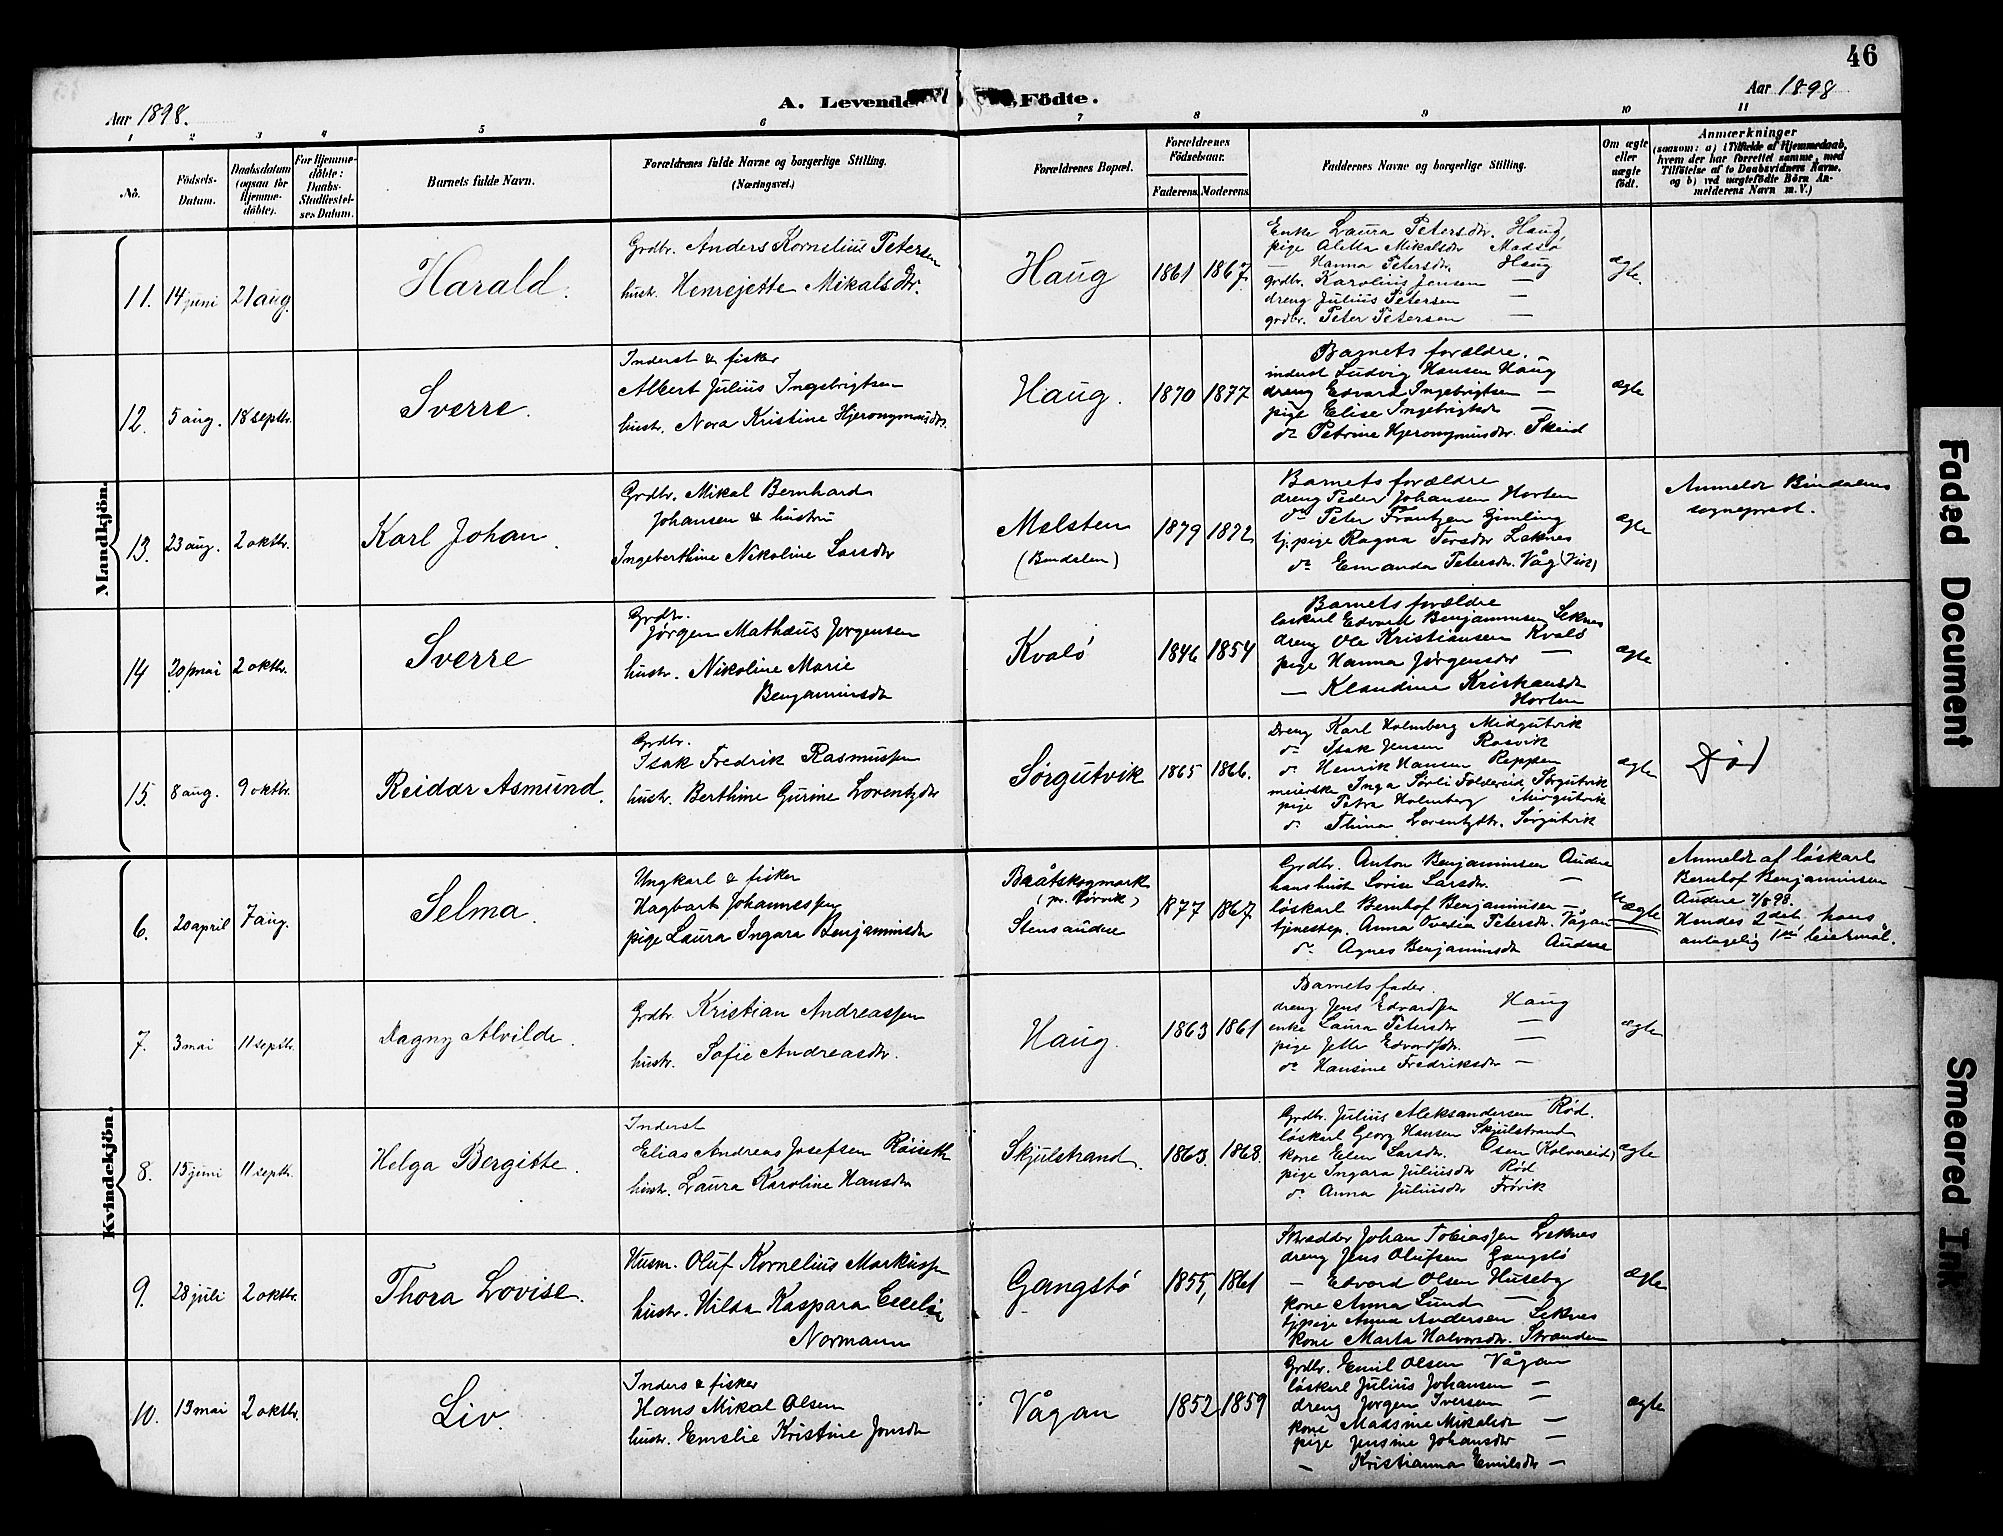 46
Aar 1898.
A. Levende Födte.
Aar 1898
1 2 3 4 5 6 7 8 9 10 11
No.
Födsels-Datum.
Daabsdatum (ogsaa for Hjemme-döbte).
For Hjemme-döbte: Daabs-Stadfæstel-ses Datum.
Barnets fulde Navn.
Forældrenes fulde Navne og borgerlige Stilling. (Næringsvei.)
Forældrenes Bopæl.
Forældrenes Födselsaar.
Faderens. Moderens.
Faddernes Navne og borgerlige Stilling.
Om ægte eller uægte født.
Anmærkninger
(saasom: a) i Tilfælde af Hjemmedaab, hvem der har forrettet samme, med Tilføielse af to Daabsvidners Navne, og b) ved uægtefødte Börn Anmelderens Navn m. V.)
Mandkjön.
11. 14 juni 21 aug. Harald.
Grdbr. Anders Kornelius Petersen
hustr. Henrejette Mikalsdtr.
Haug 1861 1867.
Enke Laura Petersdtr. Haug
pige Aletta Mikalsdtr Madsö
— Hanna Petersdtr. Haug
grdbr. Karolius Jensen —
dreng Julius Petersen —
grdbr. Peter Petersen —
ægte.
12. 5 aug. 18 septbr. Sverre.
Inderst & fisker
Albert Julius Ingebrigtsen
hustr. Nora Kristine Hjeronymusdtr.
Haug. 1870 1877
Barnets forældre. —
inderst Ludvig Hansen Haug
dreng Edvard Ingebrigtsen —
pige Elise Ingebrigtsdtr —
do Petrine Hjeronymusdtr. Skeid
ægte
13. 23 aug. 2 oktbr. Karl Johan.
Grdbr. Mikal Bernhard
Johansen & hustru
Ingeberthine Nikoline Larsdtr
Melsten
(Bindalen)
1879 1872
Barnets forældre
dreng Peder Johansen Horten
do Peter Frantzen Gimling
tj.pige Ragna Torsdtr Leknes
do Emanda Petersdtr. Våg
ægte
Anmeldt Bindalens
sogneprest.
14 20 mai 2 oktbr. Sverre
Grdbr.
Jørgen Mathæus Jørgensen
hustr. Nikoline Marie
Benjaminsdtr
Kvalö 1846 1854
Barnets forældre
løskarl Edvard Benjaminsen Leknes
dreng Ole Kristiansen Kvalö
pige Hanna Jørgensdtr —
— Klaudine Kristiansdtr
Horten
ægte
15. 8 aug. 9 oktbr. Reidar Asmund.
Grdbr.
Isak Fredrik Rasmussen
hustr. Berthine Gurine Lorentzdtr
Sørgutvik 1865 1866.
Dreng Karl Holmberg Midgutvik
do Isak Jensen Rosvik
do Henrik Hansen Reppen
meierske Inga Sørli Foldereid, Sørgutvik
pige Petra Holmberg Midgutvik
do Thina Lorentzdtr. Sørgutvik
ægte
Död
Kvindekjön.
6. 20 april 7 aug. Selma.
Ungkarl & fisker
Hagbart Johannessen
pige Laura Ingara Benjaminsdtr
Baatskogmark
(pr. Rørvik)
Stensaudne
1877 1867
Grdbr. Anton Benjaminsen Audne
hans hustr Lovise Larsdtr. —
løskarl Bernhof Benjaminsen —
tjenestep. Anna Ovedia Petersdtr. Vågan
do Agnes Benjaminsdtr Audne
uægte
Anmeldt af löskarl
Bernhof Benjaminsen
Audne 7/8 98.
Hendes 2det, hans
antagelig 1ste leiermål.
7. 3 mai 11 septbr. Dagny Alvilde.
Grdbr. Kristian Andreassen
hustr. Sofie Andreasdtr.
Haug. 1863 1861
Barnets fader.
dreng Jens Edvardsen Haug
enke Laura Petersdtr —
pige Jette Edvardsdtr. —
do Hansine Fredriksdtr —
ægte
8. 15 juni 11 septbr. Helga Bergitte.
Inderst
Elias Andreas Josefsen Röiseth
hustr. Laura Karoline Hansdtr
Skjulstrand. 1863. 1868.
Grdbr. Julius Aleksandersen Rød.
löskarl Georg Hansen Skjulstrand
kone Elen Larsdtr. Olsen (Kolvereid)
pige Ingara Juliusdtr Rød
do Anna Juliusdtr Frövik
ægte
9. 28 juli 2 oktbr. Thora Lovise.
Husm. Oluf Kornelius Markussen
hustr. Hilda Kaspara Cecelie
Normann
Gangstö 1855, 1861
Skrædder Johan Tobiassen Leknes
dreng Jens Olufsen Gangstö
— Edvard Olsen Huseby
kone Anna Lund —
tj.pige Anna Andersen Leknes
kone Marta Halvorsdtr. Stranden
ægte
10. 13 mai 2 oktbr. Liv.
Inders & fisker
Hans Mikal Olsen
hustr. Emelie Kristine Jonsdtr
Vågan 1852 1859
Grdbr. Emil Olsen Vågan
löskarl Julius Johansen —
dreng Jørgen Iversen —
kone Madsine Mikalsdtr —
pige Jensine Johansdtr —
— Kristianna Emilsdtr —
ægte
Faded Document
Smeared Ink